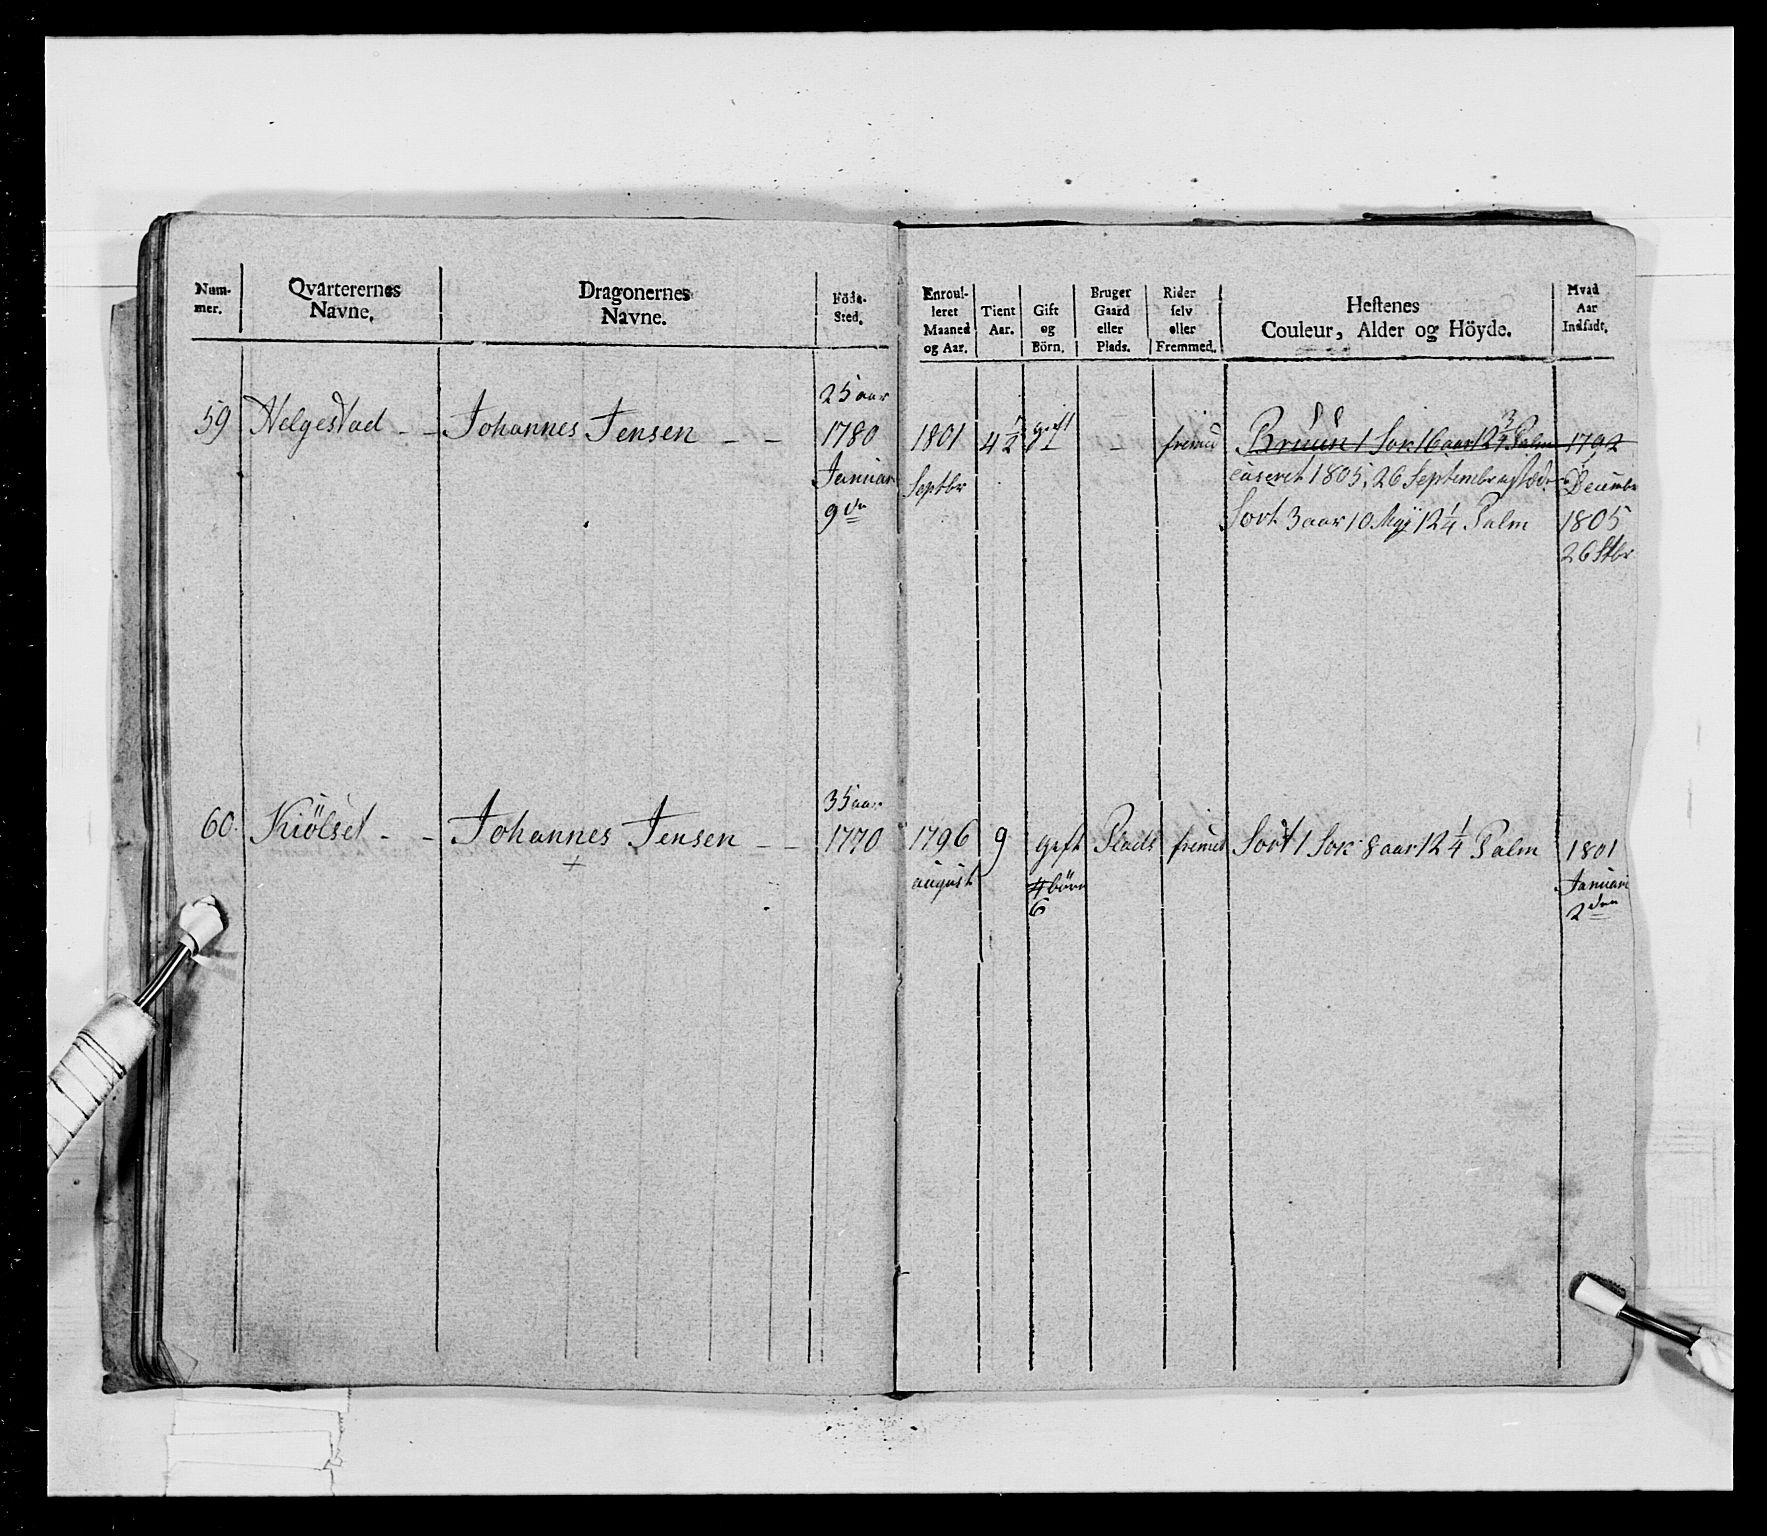 Num-
mer.
Qvarterernes
Navne.
Dragonernes
Navne.
Föde-
Sted.
Enroul-
leret
Maaned
og Aar.
Tient
Aar.
Gift
og
Börn.
Bruger
Gaard
eller
Plads.
Rider
selv
eller
Fremmed.
Hestenes
Couleur, Alder og Höyde.
Hvad
Aar
Indsadt.
59 Helgestad - - Johannes Jensen - -
25 aar
1780
Januar
9de
1801
Septbr
4 1/2
gift
1
-
fremd
Bruun 1 Sok 16 aar 12 3/4 Palm
caseret 1805, 26 Septembr
Sort 3 aar 10 12 1/4 Palm
1792
Decembr
1805
26 Stbr
60. Kiölset - - Johannes Jensen - -
+
35 aar
1770
1796
august
9
Gift
4 börn
6
Plads
fremd
Sort 1 Sok 8 aar 12 1/4 Palm
1801
Januari
2den